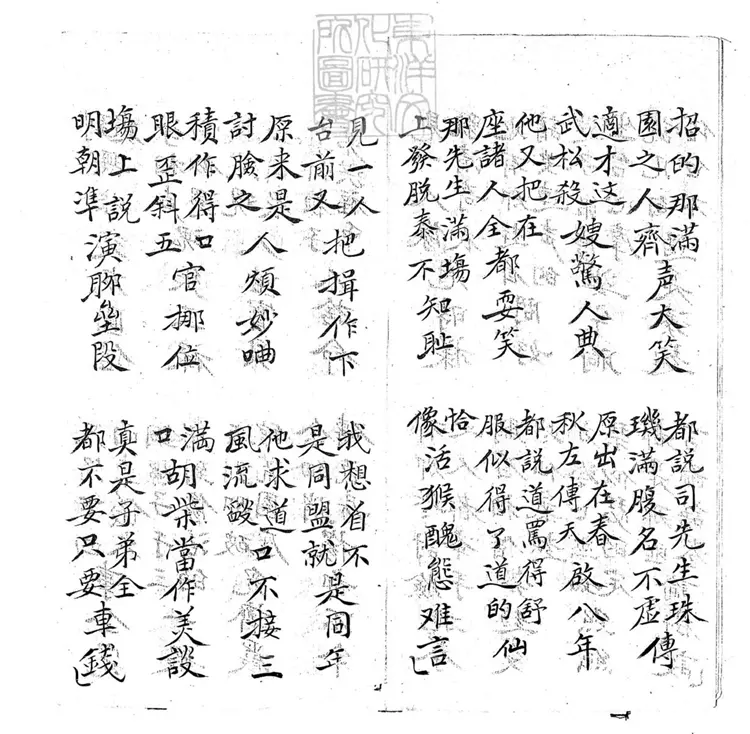 東洋文化研究所圖書
招的那滿園之人齊声大笑
都說司先生珠璣滿腹名不虛傳
適才这武松殺嫂驚人典
原出在春秋左傳天啟八年
他又把在座諸人全都耍笑
都說道罵得舒服似得了道的仙
那先生滿塲上發脫泰不知耻
恰像活猴醜態难言
見一人台前又把揖作下
我想着不是同盟就是同年
原来是討臉之人煩妙
他求道風流燄口不接三
積作得口眼歪斜五官挪位
滿口胡柴當作美談
塲上說明朝準演聊壘段
真是子弟全都不要只要車錢